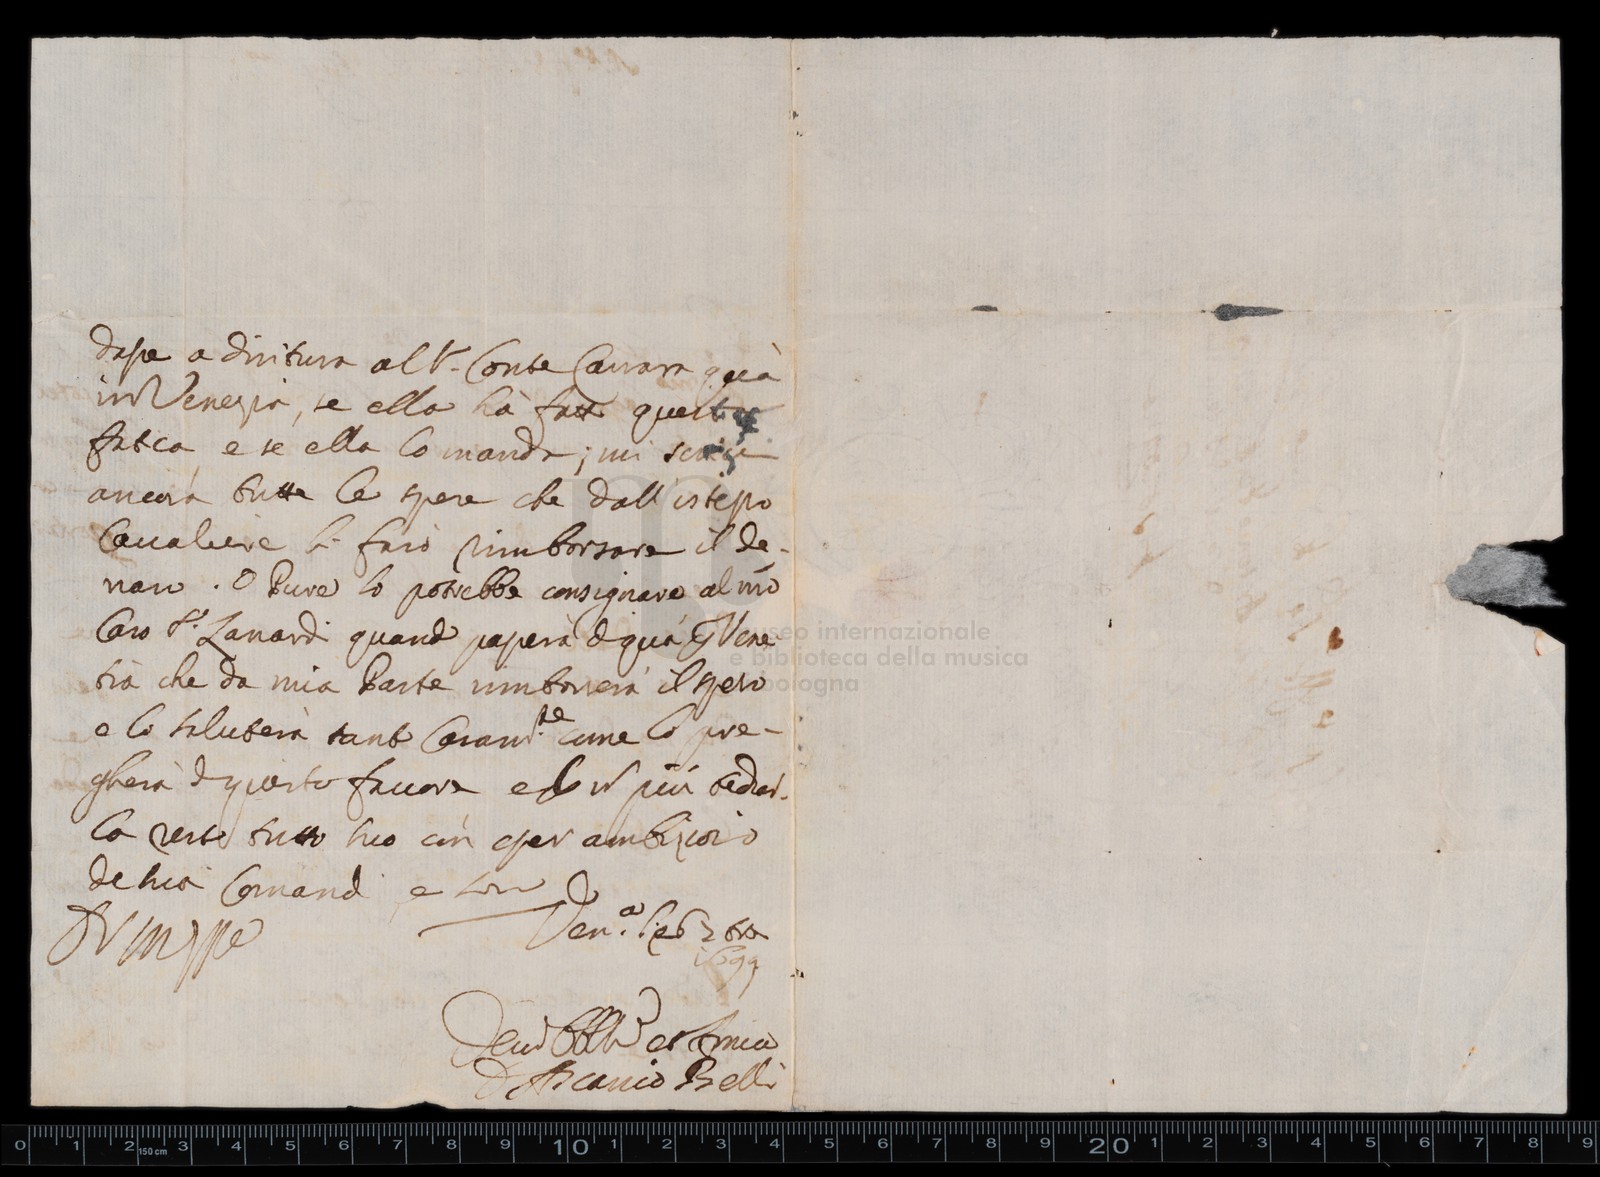 dasse a diritura al Sr. Conte Carrara quà
in Venezia, se ella hà fatto questa
fatica e se ella lo manda, mi scrivi
ancora tutte le spese che dall'istesso
Cavaliere li farò rimborsare il de-
naro. O Pure lo potrebbe consignare al mio
Caro Sr. Zanardi quando passerà di quà p Vene-
tia che da mia Parte rimborserà il speso
e lo saluterà tanto Caram.te come lo pre-
gherà di questo favore e di più
la resto tutto suo con esser ambizioso
de suoi Comandi e son
Ven.a li 26
1699
SV Ill
Dev Obbl Ser
D Ascanio Belli
museo internazionale
e biblioteca della musica
bologna
0 1 2 3 4 5 6 7 8 9 10 1 2 3 4 5 6 7 8 9 20 1 2 3 4 5 6 7 8 9
150 cm